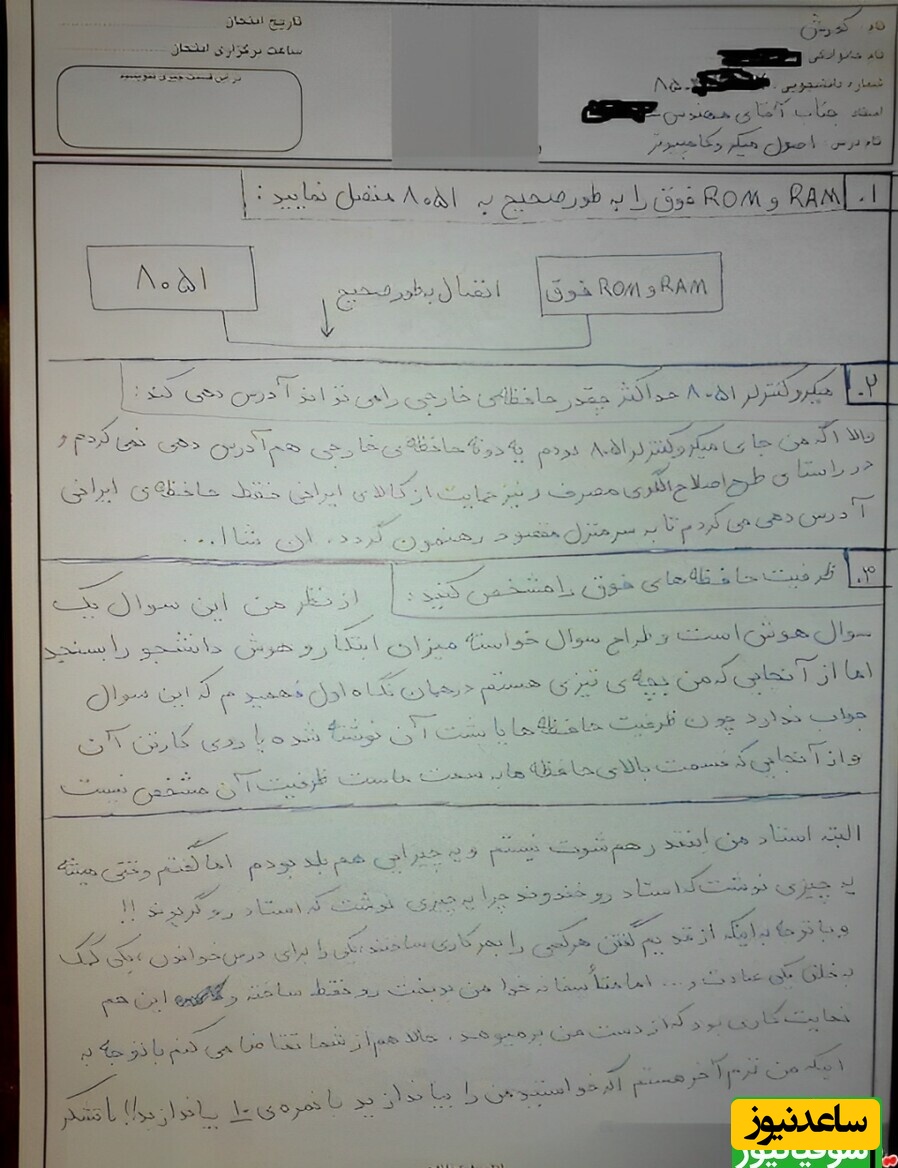 نام: کورش
نام خانوادگی
شماره دانشجویی: ۸۵۰
استاد: جناب آقای مهندس
نام درس: اصول میکروکامپیوتر
تاریخ امتحان
ساعت برگزاری امتحان
در این قسمت چیزی ننویسید
۱. RAM و ROM فوق را به طور صحیح به ۸۰۵۱ متصل نمایید:
RAM و ROM فوق
اتصال بطور صحیح
۸۰۵۱
۲. میکروکنترلر ۸۰۵۱ حداکثر چقدر حافظه‌ی خارجی را می تواند آدرس دهی کند:
والا اگه من جای میکروکنترلر ۸۰۵۱ بودم یه دونه حافظه‌ی خارجی هم آدرس دهی نمی کردم و
در راستای طرح اصلاح الگوی مصرف و نیز حمایت از کالای ایرانی فقط حافظه‌ی ایرانی
آدرس دهی می کردم تا به سرمنزل مقصود رهنمون گردد. ان شاا...
۳. ظرفیت حافظه های فوق را مشخص کنید: از نظر من این سوال یک
سوال هوش است و طراح سوال خواسته میزان ابتکار و هوش دانشجو را بسنجید
اما از آنجایی که من بچه‌ی تیزی هستم در همان نگاه اول فهمیدم که این سوال
جواب ندارد چون ظرفیت حافظه ها یا پشت آن نوشته شده یا روی کارتن آن
و از آنجایی که قسمت بالای حافظه ها به سمت ماست ظرفیت آن مشخص نیست
البته استاد من اینقدر هم شوت نیستم و یه چیزایی هم بلد بودم اما گفتم وقتی میشه
یه چیزی نوشت که استاد رو خندوند چرا یه چیزی نوشت که استاد رو گریوند !!
و با توجه به اینکه از قدیم گفتن هر کسی را بهر کاری ساختند، یکی را برای درس خواندن، یکی کمک
به خلق یکی عبادت و ... اما متأسفانه خدا من بدبخت رو فقط ساخته و این هم
نهایت کاری بود که از دست من بر میومد. حالا هم از شما تقاضا می کنم با توجه به
اینکه من ترم آخر هستم اگه خواستید من را بیاندازید با نمره‌ی ۱۰ بیاندازید!! با تشکر
ساعدنیوز
سوفیانیوز